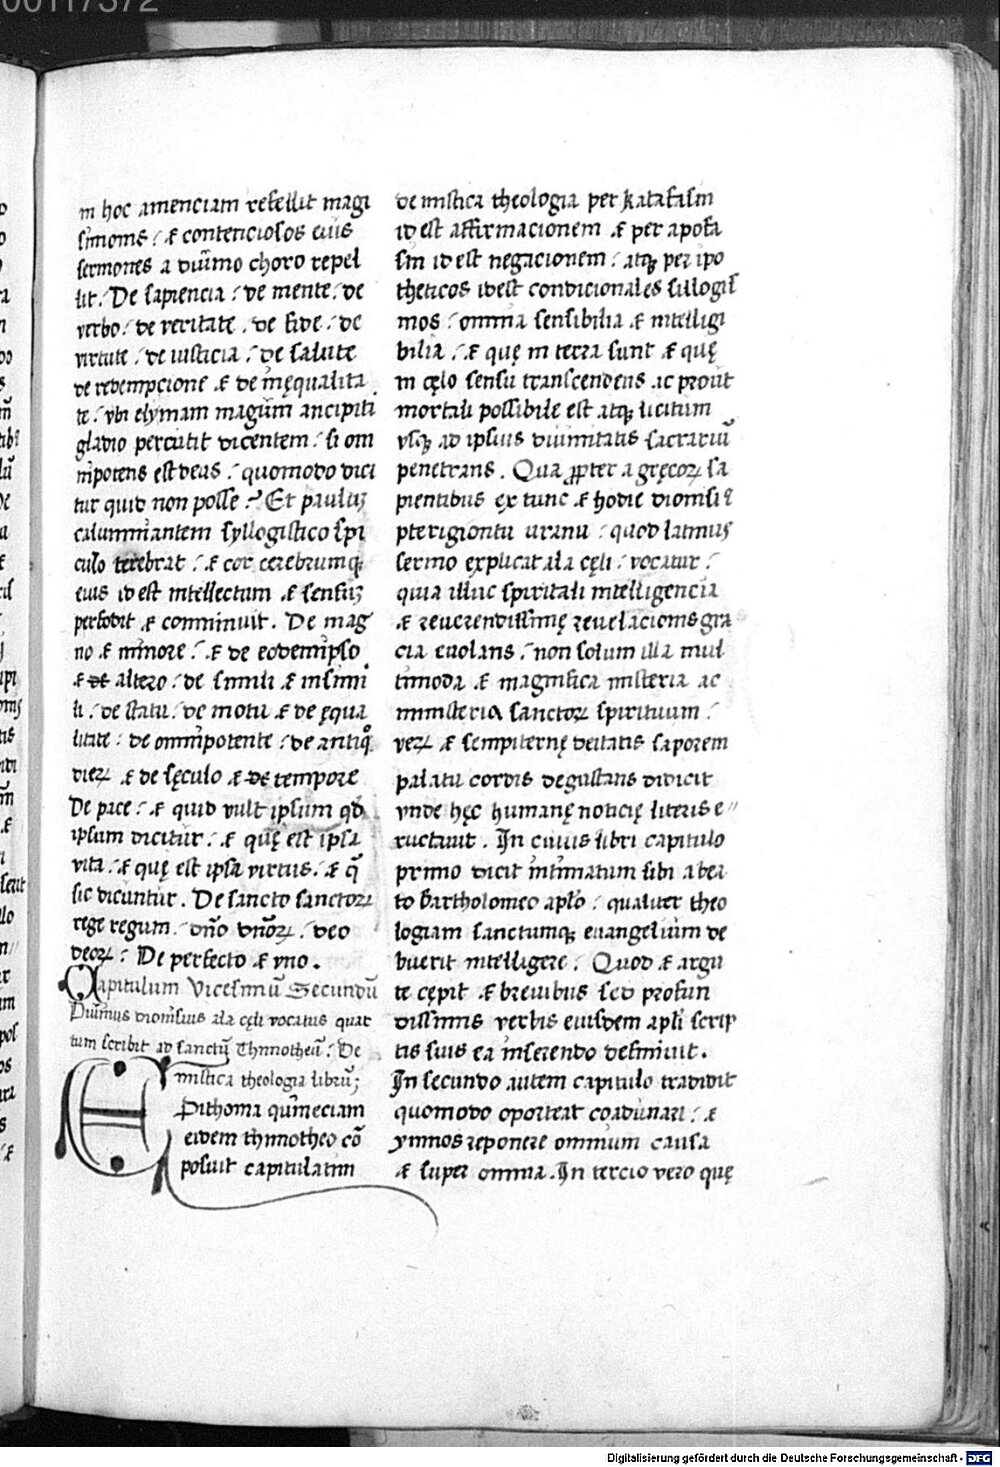 00117372
in hoc amenciam refellit magi
simonis : & contenciosos eius
sermones a diuīno choro repel
lit. De sapiencia : de mente : de
verbo : de veritate : de fide : de
virtute : de iusticia : de salute
de redempcione & de inęqualita
te : vbi elymam magum ancipiti
gladio percutit dicentem : si om
nipotens est deus : quomodo dici
tur quid non posse ? Et paulūꝫ
calumniantem syllogistico spi
culo terebrat : & cor cerebrumqꝫ
eius id est intellectum & sensūꝫ
perfodit & comminuit. De mag
no & minore : & de eodem ipso
& de altero : de simili & insimi
li : de statu : de motu & de ęqua
litate : de omnipotente : de antiqͦꝝ
dierꝝ & de sęculo & de tempore
De pace : & quid vult ipsum qd̄
ipsum dicitur : & quę est ipsa
vita : & quę est ipsa virtus : & q̄
sic dicuntur. De sancto sanctorꝝ
rege regum : dn̄o dn̄orꝝ : deo
deorꝝ : De perfecto & vno.
Capitulum Vicesimū Secundū
Diuinus dionisius ala cęli vocatus quar
tum scribit ad sanctū Thimotheū : De
mistica theologia librū;
Epithoma quin eciam
eidem thimotheo cō
posuit capitulatim
de mistica theologia per katafasin
id est affirmacionem & per apofa
sin id est negacionem : atqꝫ per ipo
theticos id est condicionales sillogis
mos : omnia sensibilia & intelligi
bilia : & quę in terra sunt & quę
in cęlo sensu transcendens ac prout
mortali possibile est atqꝫ licitum
vsqꝫ ad ipsius diuinitatis sacrariū
penetrans. Qua ꝓpter a gręcorꝝ sa
pientibus ex tunc & hodie dionisiꝰ
pterigiontu uranu : quod latinus
sermo explicat ala cęli : vocatur :
quia illuc spiritali intelligencia
& reuerendissimę reuelacionis gra
cia euolans : non solum illa mul
timoda & magnifica misteria ac
ministeria sanctorꝝ spirituum :
verꝝ & sempiternę deitatis saporem
palatu cordis degustans didicit
vnde hęc humanę noticię literis e
ructauit. In cuius libri capitulo
primo dicit intimatum sibi a bea
to bartholomeo apl̄o : qualiter theo
logiam sanctumqꝫ euangelium de
buerit intelligere : Quod & argu
te cępit & breuibus sed profun
dissimis verbis eiusdem apl̄i scrip
tis suis ea inserendo definiuit.
In secundo autem capitulo tradidit
quomodo oporteat coadunari : &
ymnos reponere omnium causa
& super omnia. In tercio vero quę
Digitalisierung gefördert durch die Deutsche Forschungsgemeinschaft - DFG